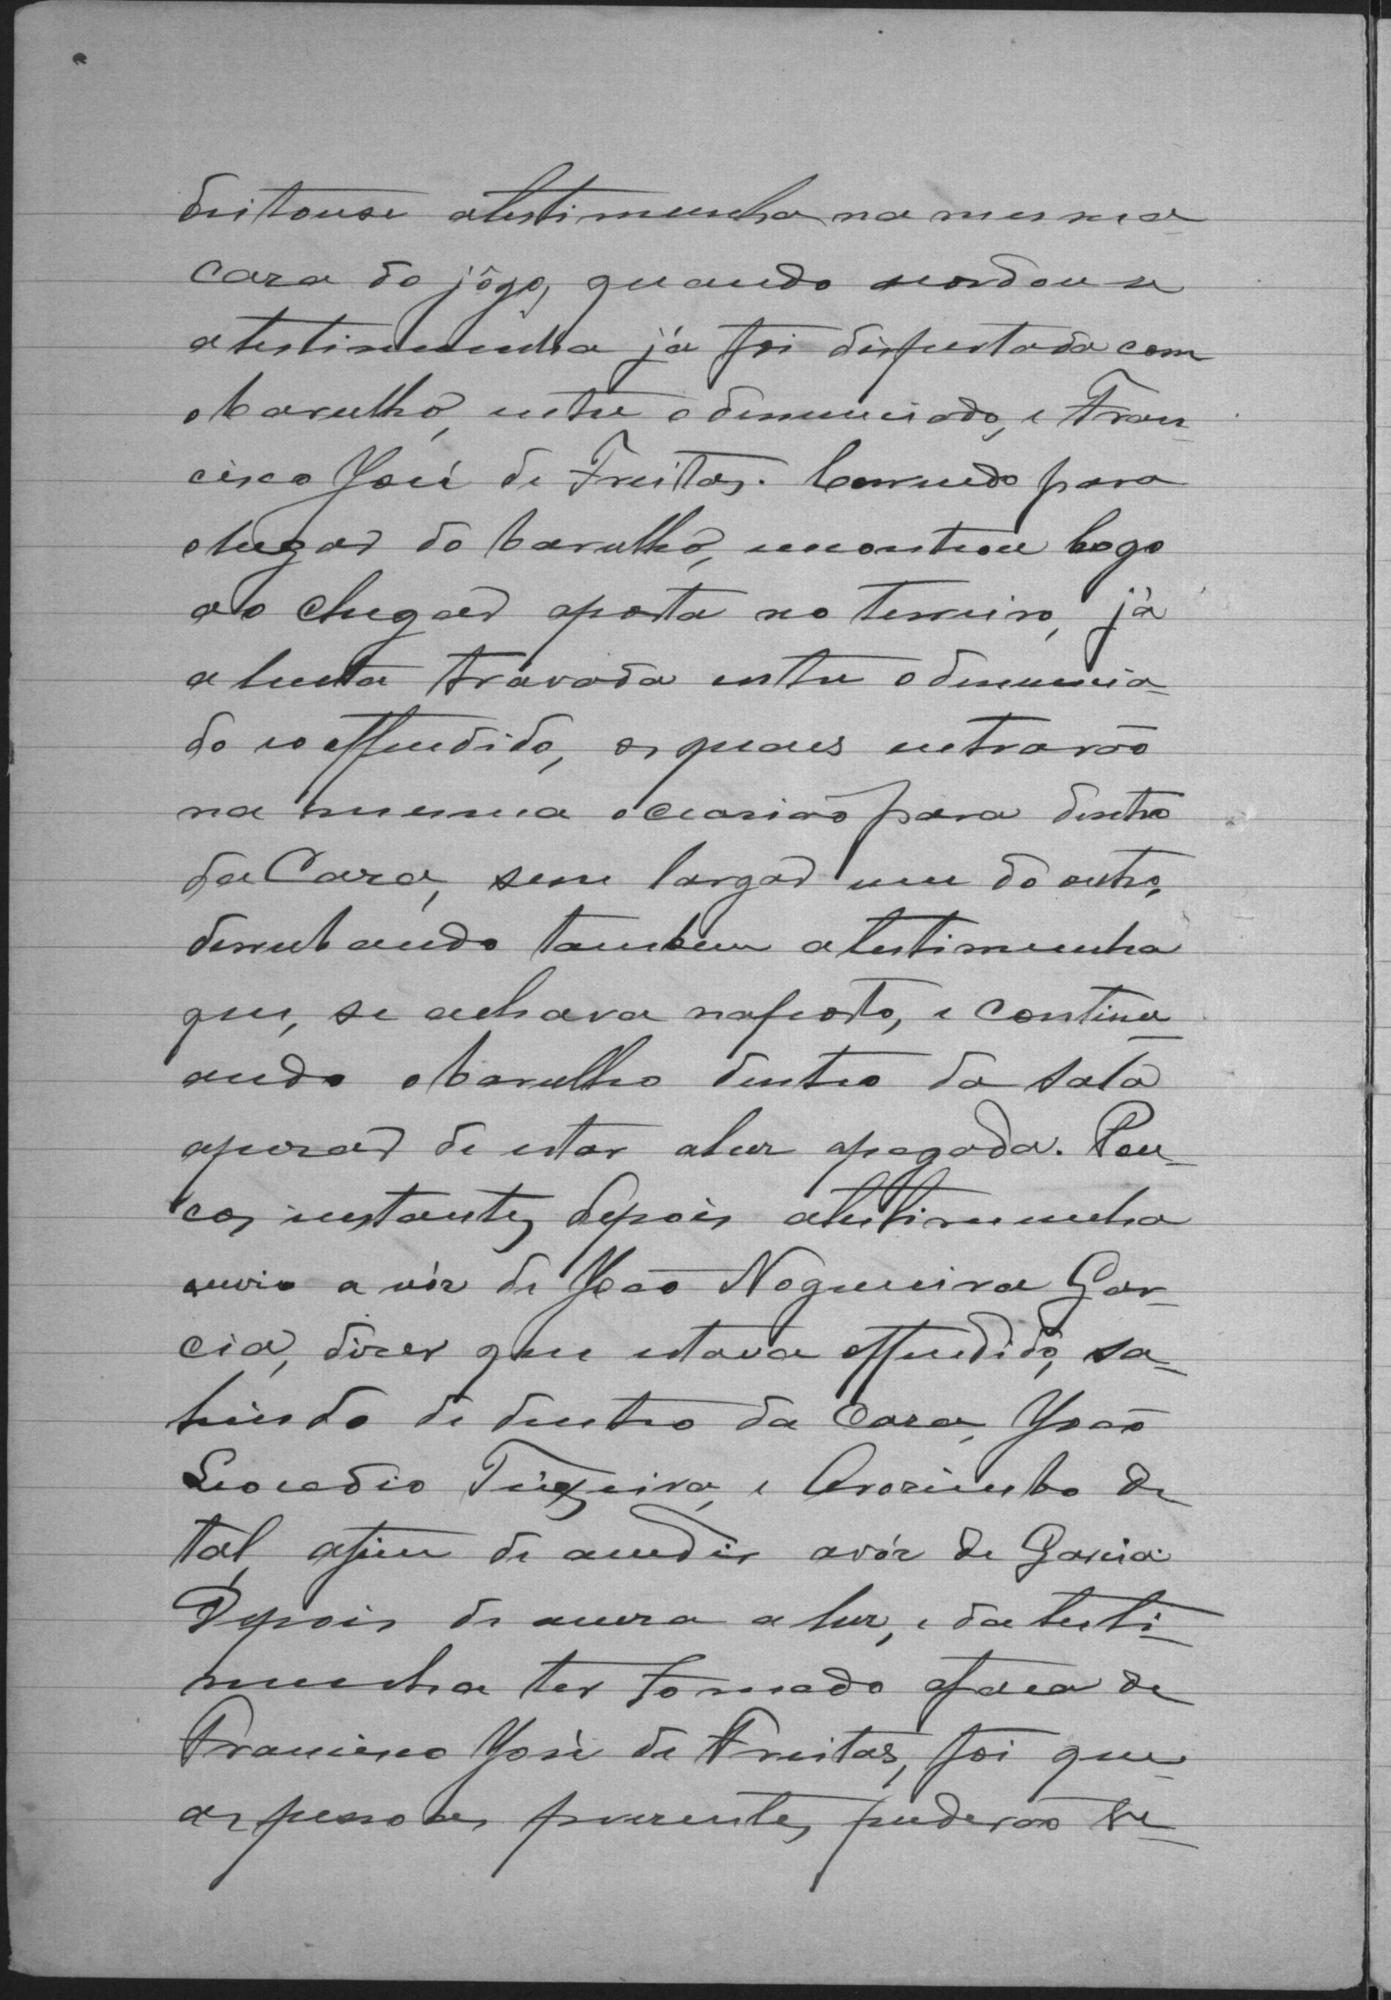 deitouse atestimunha na mesma
caza do jôgo, quando acordouse
atestimunha já foi dispertada com
obarulho, entre odenunciado, e Fran-
cisco José de Freitas. Correndo para
olugar do barulho, encontrou logo
ao chegar aporta no terreiro, já
a lucta travada entre odenuncia-
do eo offendido, os quaes entrarão
na mesma occasião para dentro
da Caza, sem largar um do outro,
derrubando tambem atestimunha
que, se achava naporta, e continu-
ando obarulho dentro da sala
apezar de estar aluz apagada. Pou-
cos instantes depois atestimunha
ouvio a vóz de João Nogueira Gar-
cia, dizer que estava offendido, sa-
hindo de dentro da Caza, João
Leocadio Teixeira, e Carosimbo de
tal, afim de acudir avóz de Garcia.
Depois de aceza a luz, e da testi-
munha ter tomado afaca de
Francisco José de Freitas, foi que
as pessoas prezentes puderão ve-